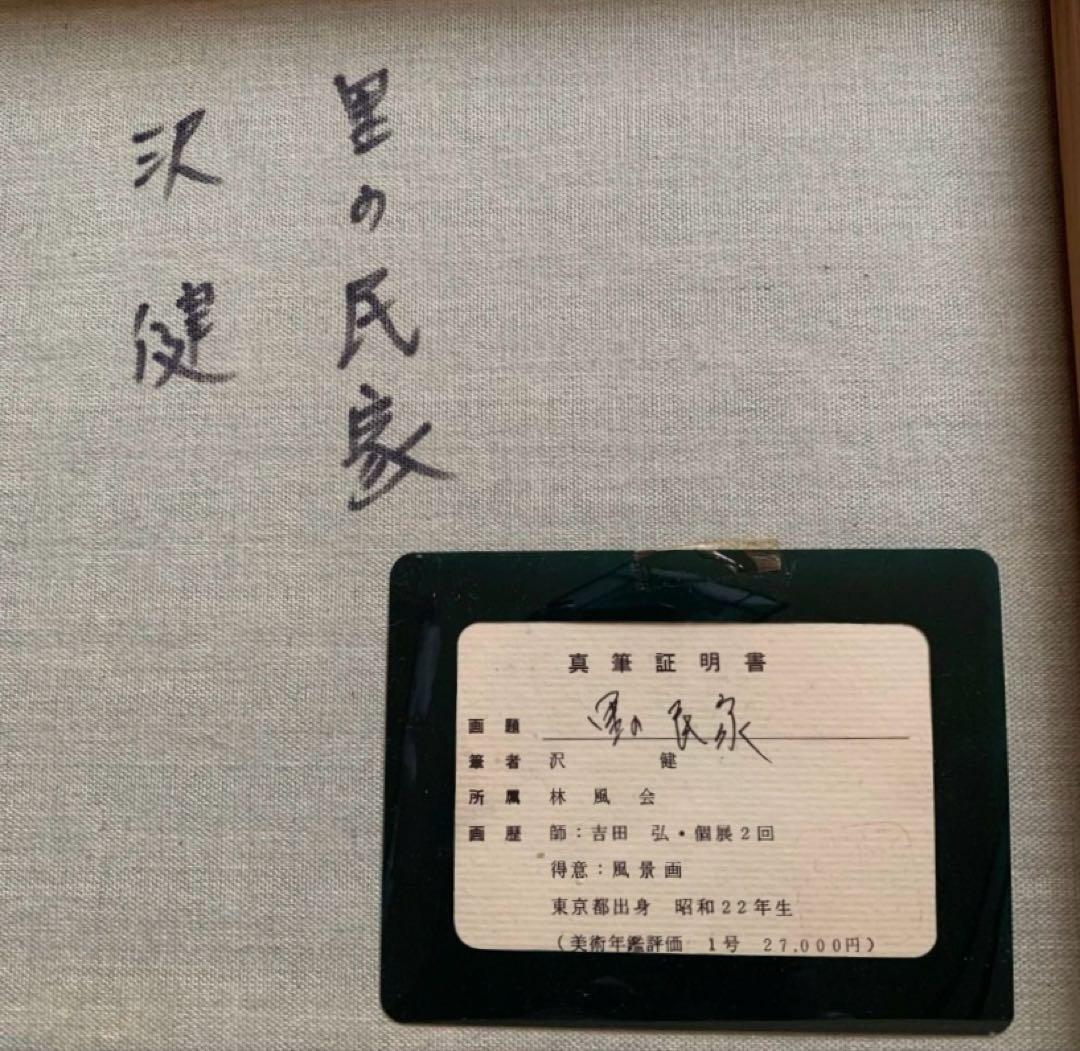 里の民家
沢 健
真筆証明書
画題 里の民家
筆者 沢 健
所属 林風会
画歴 師：吉田 弘・個展2回
得意：風景画
東京都出身 昭和22年生
（美術年鑑評価 1号 27.000円）